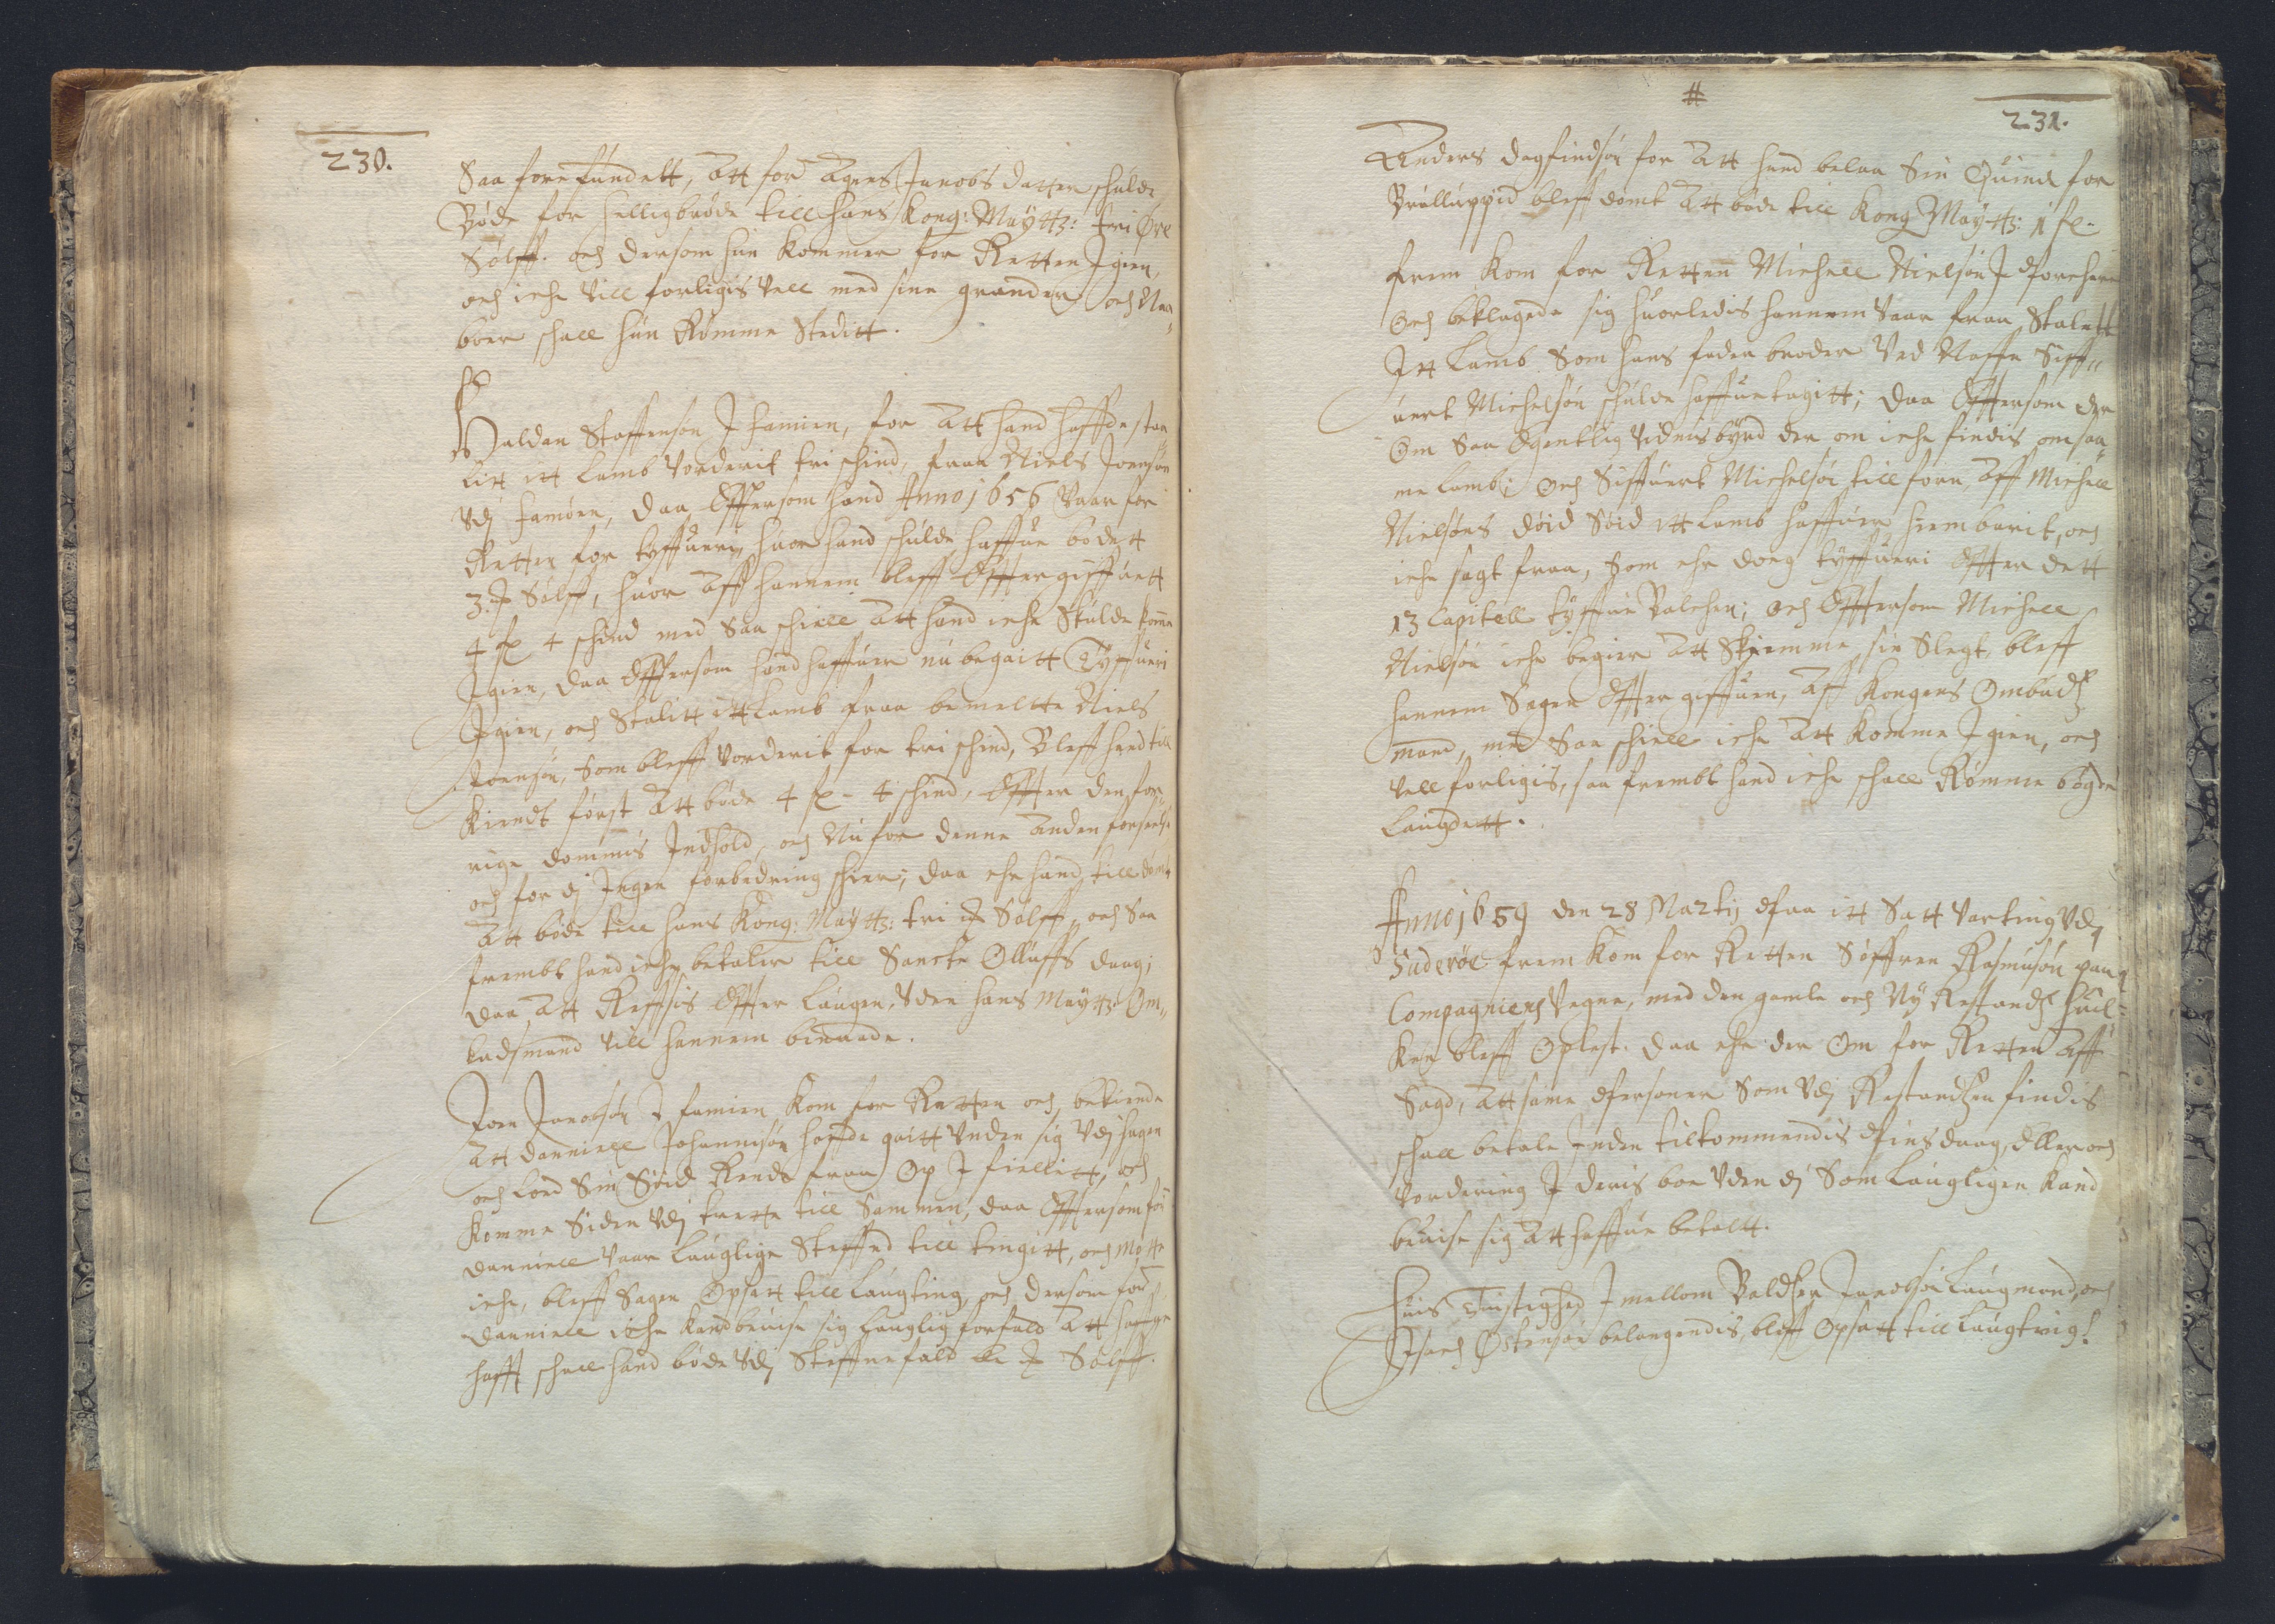 230.
Saa fore fundett, att for Agnes Jacobs datter schulde
Bøde for helligbrøde till hans Kong: Maÿttz: tri Øre
Sølff. och dersom hun kommer for Retten Igien,
och iche vill forligis vell med sine grander och Na„
boer schall hun Rømme Steditt.
Haldan Staffensøn J Famien, for att hand haffde staa„
litt itt Lamb vorderit tri schind, fraa Niels Joensøn
Vdj Famøen, daa Efftersom hand Anno 1656 Vaar for
Retten for tyffueri, huor hand schulde haffue bødett
3 Sølff, huor aff hannem bleff Efftergiffuett
4 fl 4 schind med Saa schiell att hand iche Skulde komme
Igien, daa Efftersom hand haffuer nu begaitt Tyffueri
Igien, och Stalitt itt Lamb fraa bemelte Niels
Joensøn, Som bleff vorderit for tri schind, Bleff hand till
Kiendt først att bøde 4 fl - 4 schind, Effter den for„
rige dommis Indhold, och Nu for denne anden forseelse
och for dj Ingen forbedring schier; daa ehr hand till dømt
att bøde till hans Kong: Maÿttz: tri Sølff, och Saa
frembt hand iche betaler till Sancte Olluffs daag;
daa att Reffsis Effter Laugen, Vden hans Maÿttz: Om„
budsmand vill hannem benaade.
Joen Jacobsøn J Famien kom for Retten och bekiende
att Danniell Johannisøn haffde gaitt Vnder sig Vdj hagen
och lod Sin Søid Rende fraa Op J fiellitt, och
komme Siden Vdj trette till Sammen, daa Efftersom for:
Danniell vaar Lauglige Steffnd till tingitt, och møtte
iche, bleff Sagen Opsatt till Laugting, och dersom for:
Danniell iche kand beuise sig Lauglig forfald att haffue
hafft schall hand bøde Vdj Steffnefald Sølff.
#
231.
Anders Dagfindsøn for att hand belaa Sin Quinde for
Brølluppid bleff dømt att bøde till Kong Maÿttz: 1 fl.
frem kom for Retten Michell Nielsøn J
Och beklagede sig huorledis hannem vaar fraa Stalett
Itt Lamb Som hans fader broder Ved Naffn Siff„
uert Michelsøn schulde haffue tagitt; daa Efftersom der
Om Saa Egentlig Vidnisbyrd der om iche findis om saa„
me Lamb; Och Siffuert Michelsøn till forn, aff Michell
Nielsøns døid Søid itt Lamb haffuer hiembarit, och
iche sagt fraa, som ehr dog tyffueri Effter dett
13 Capitell tyffue Balchen; och Efftersom Michell
Nielsøn iche begier att Skiemme sin Slegt, bleff
hannem Sagen Effter giffuen, aff Kongens Ombuds
mand, med Saa schiell iche att komme Igien, och
vell forligis, saa frembt hand iche schall Rømme bøgde
Laugdett.
Anno 1659 den 28 Martij paa itt Satt Varting Vdj
Suderøe frem kom for Retten Søffren Rasmusøn paa
Compagniens Vegne, med den gamle och Ny Restands huil=
ken bleff Oplest. daa ehr der Om for Retten aff
Sagd, att same personer Som Vdj Restandtzen findis
schall betale Inden tilkommendis Pins daag, Eller och
vordering J deris boe Vden dj Som Laugligen kand
beuise sig att haffue betalt.
Huis Tuistighed Imellom Baldtzer Jacobsøn Laugmand, och
Isach Østensøn belangendis, bleff Opsatt till Laugtings